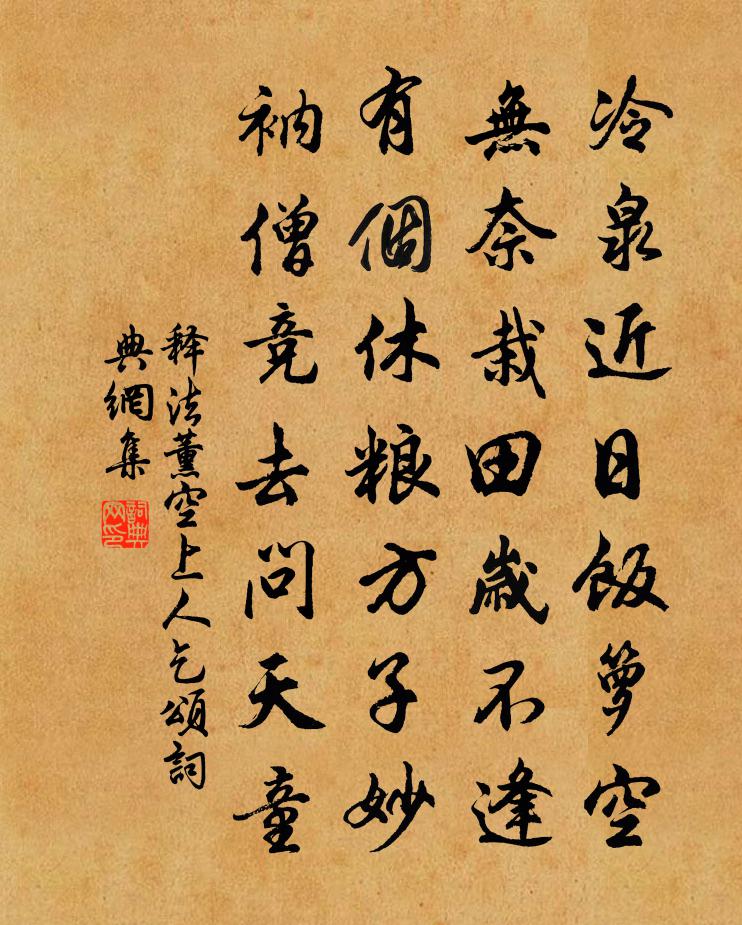 冷泉近日飯籮空
無奈栽田歲不逢
有個休粮方子妙
衲僧竞去問天童
释法薰空上人乞頌詞
典網集
詞典
网印